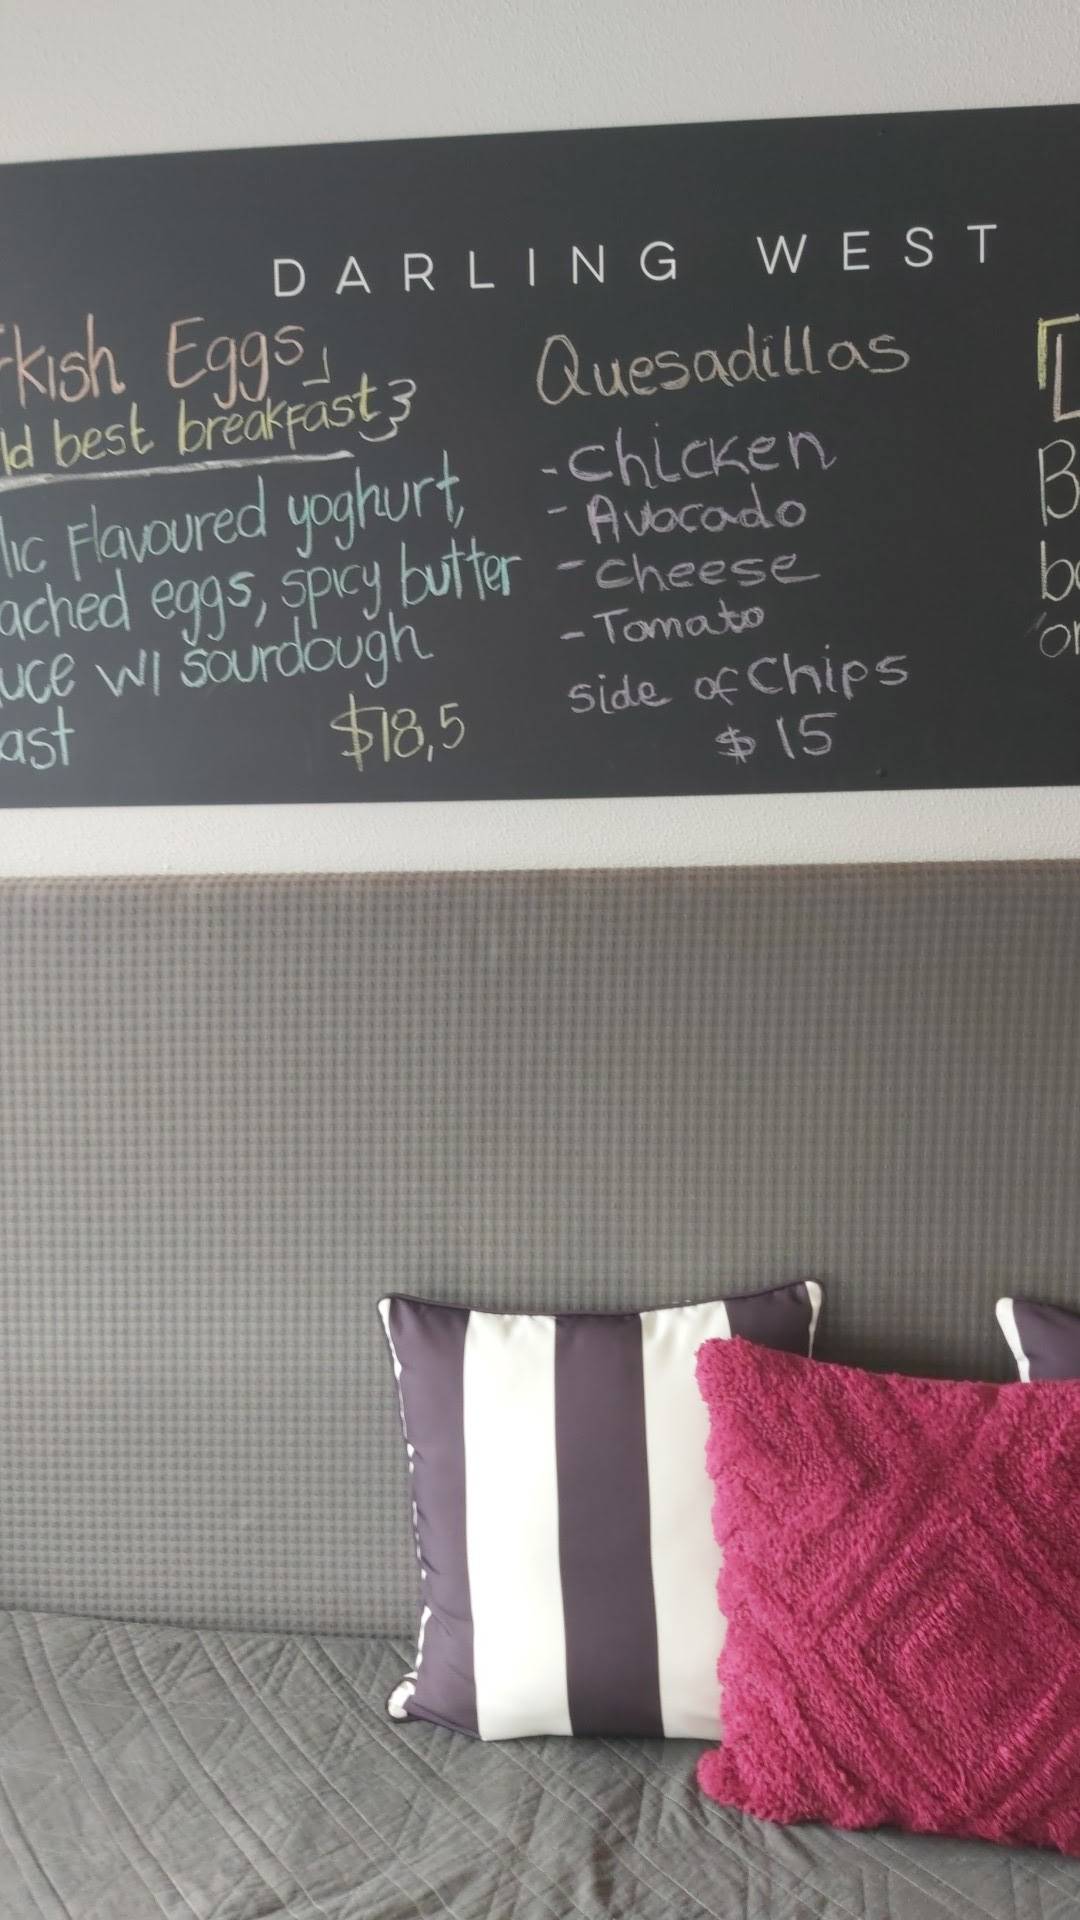 DARLING WEST
rkish Eggs
ld best breakfast}
lic Flavoured yoghurt,
ached eggs, spicy butter
uce w/ sourdough
ast $18,5
Quesadillas
- Chicken
- Avocado
- cheese
- Tomato
side of Chips
$15
B
bo
or